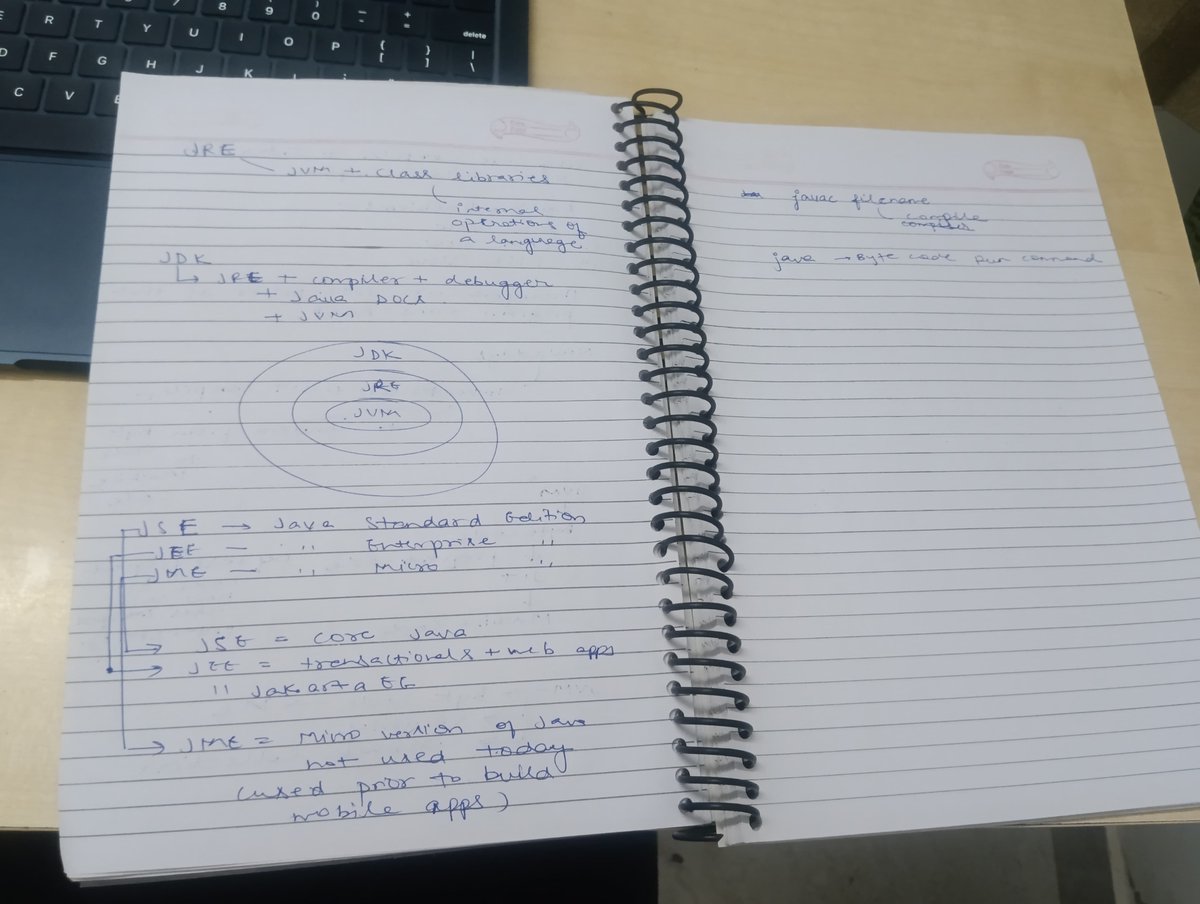 JRE
JVM + class libraries
internal
operations of
a language
JDK
JRE + compiler + debugger
+ Java DOCS
+ JVM
JDK
JRE
JVM
JSE → Java Standard Edition
JEE — " Enterprise "
JME — " Micro "
JSE = core Java
JEE = transactionals + web apps
" Jakarta EE
JME = Micro version of Java
not used today
(used prior to build
mobile apps)
javac filename
compile
compiler
java → Byte code run command
E R T Y U I O P { [ } ] | \
7 8 9 0 ) _ - + = delete
D F G H J K L
C V